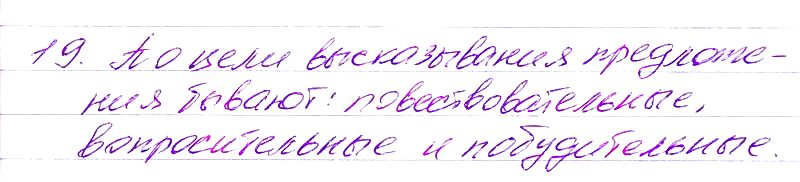 19. По цели высказывания предложе-
ния бывают: повествовательные,
вопросительные и побудительные.